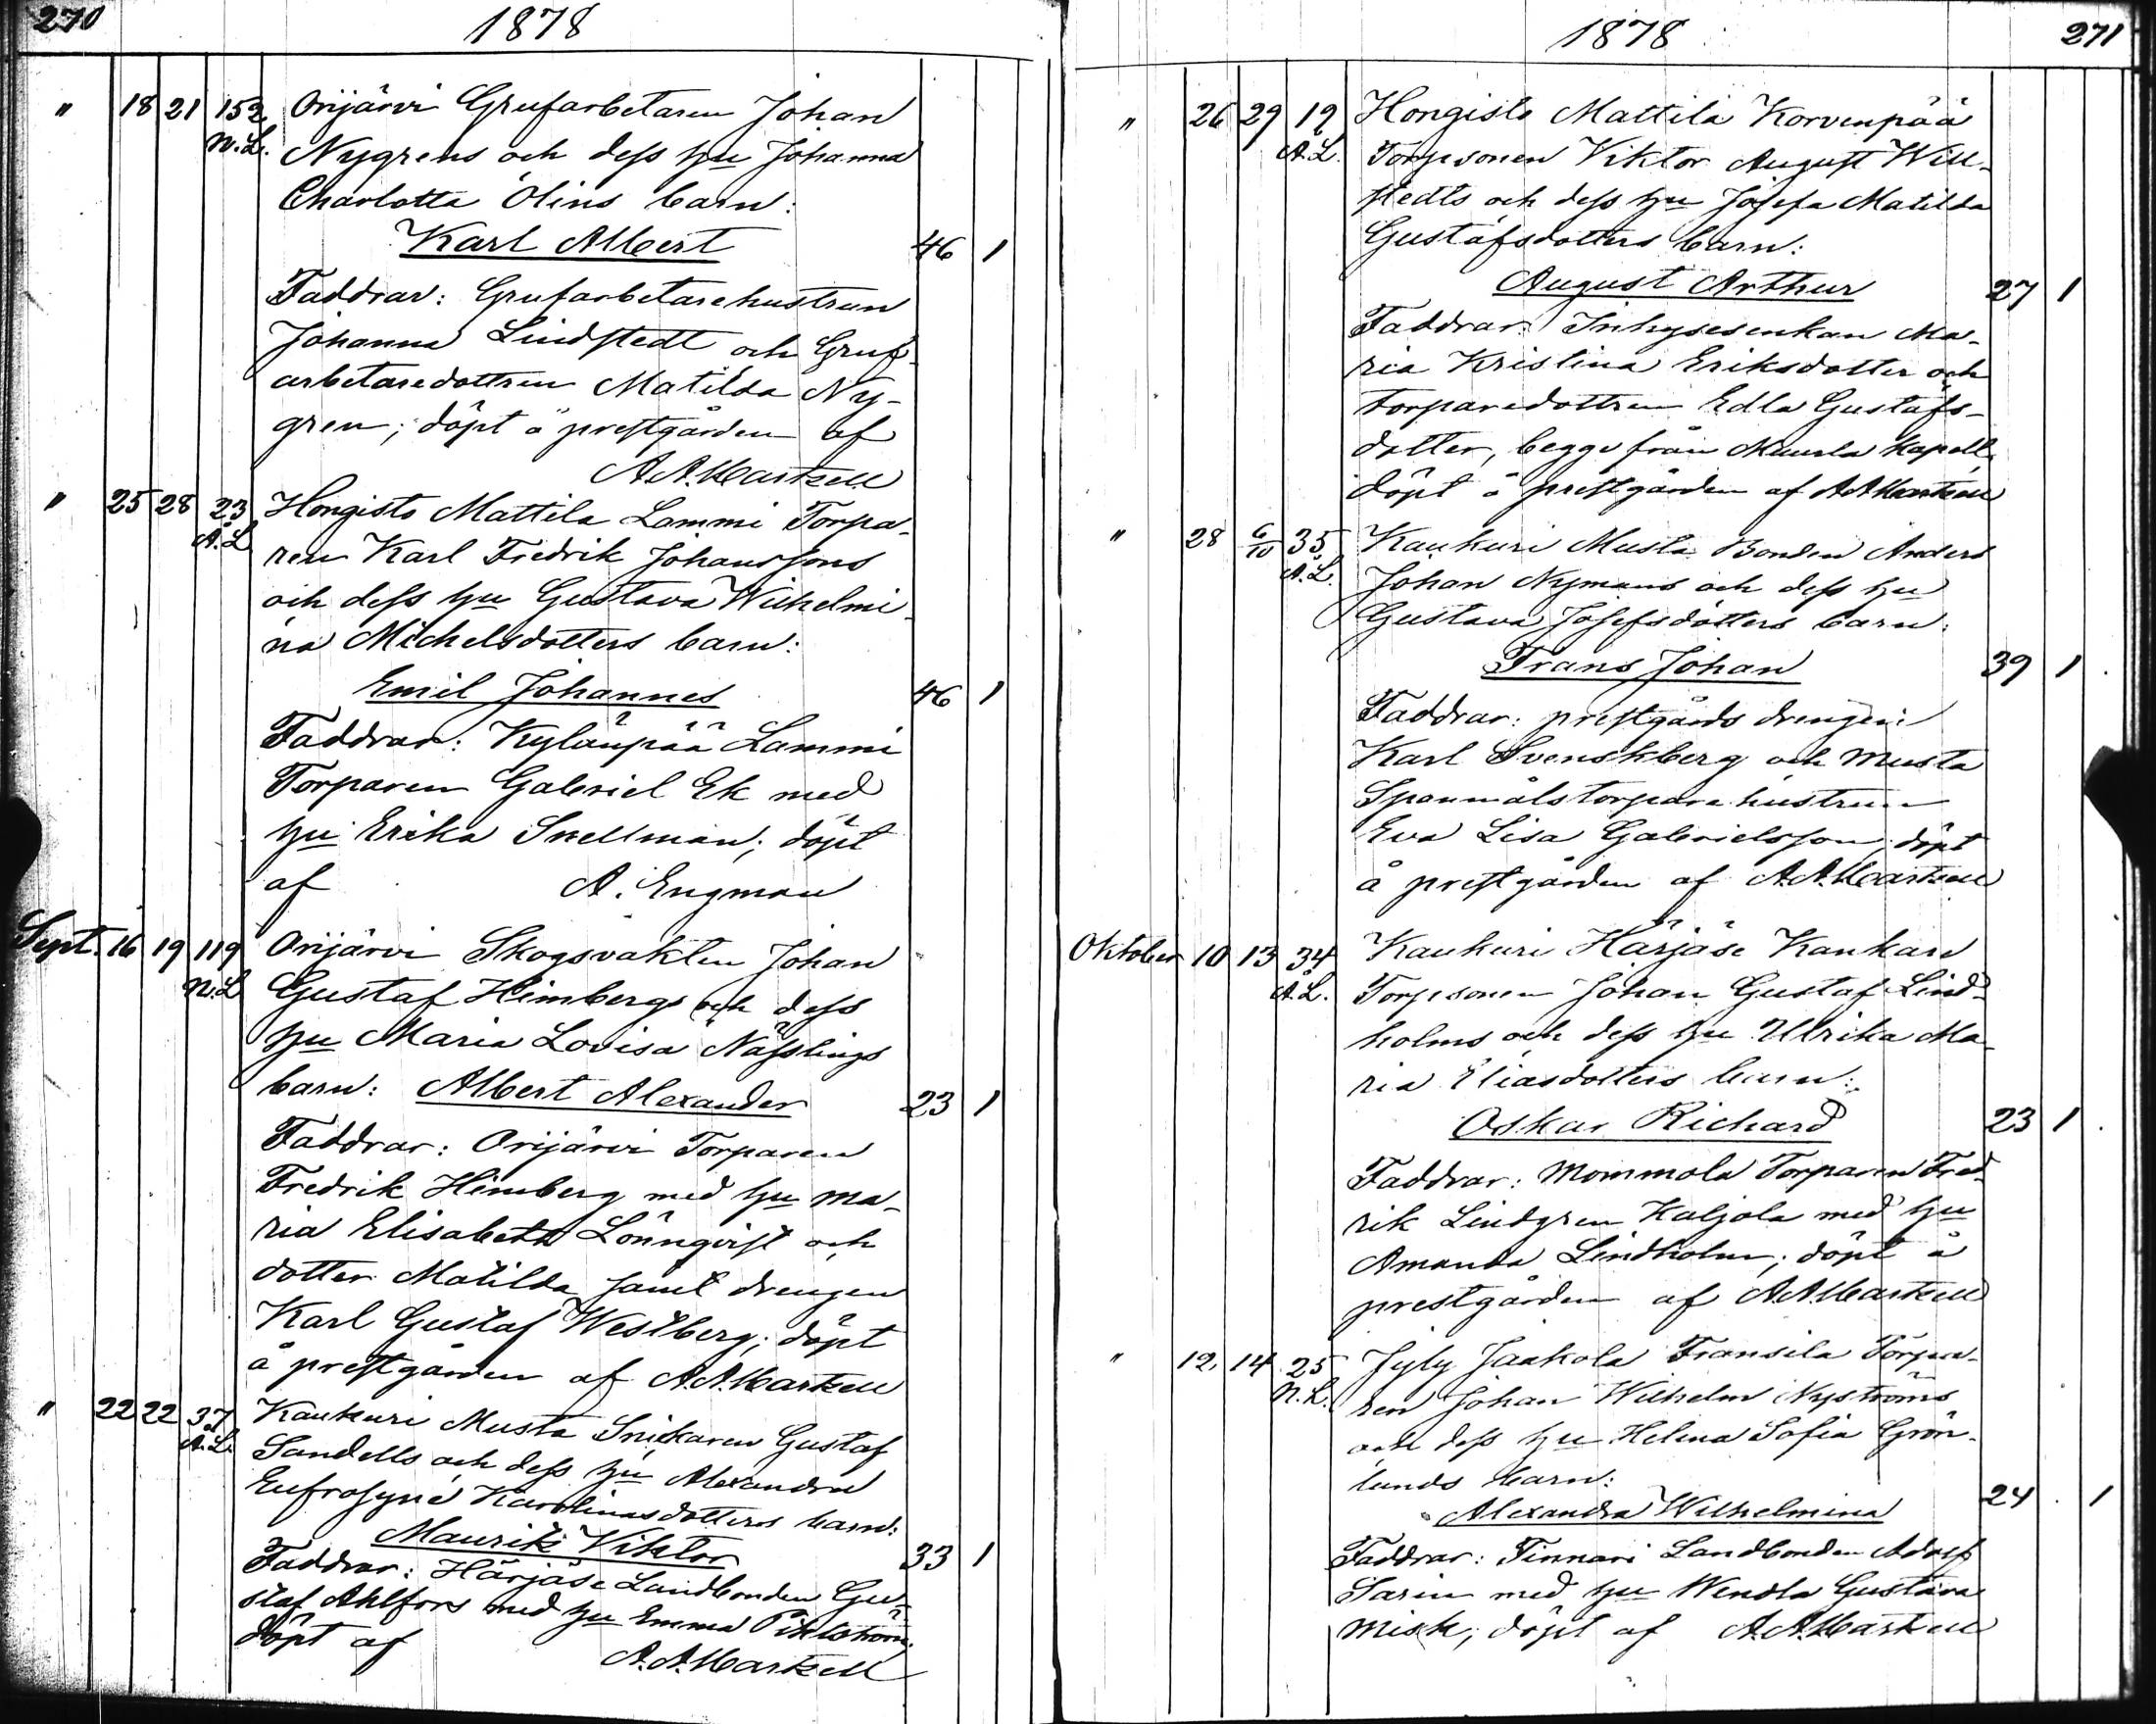 270
1878
" 18 21 152 Orijärvi Grufarbetaren Johan
N.L. Nygrens och dess hu Johanna
Charlotta Olins barn:
Karl Albert 46 1
Faddrar: Grufarbetarehustrun
Johanna Lindstedt och Gruf-
arbetaredottren Matilda Ny-
gren; döpt å prestgården af
A.A. Markell
" 25 28 23 Hongisto Mattila Lammi Torpa-
A.L. ren Karl Fredrik Johanssons
och dess hu Gustava Wilhelmi-
na Michelsdotters barn:
Emil Johannes 46 1
Faddrar: Kylänpää Lammi
Torparen Gabriel Ek med
hu Erika Snellman; döpt
af A. Engman
Sept. 16 19 119 Orijärvi Skogsvakten Johan
N.L. Gustaf Himbergs och dess
hu Maria Lovisa Nässlings
barn: Albert Alexander 23 1
Faddrar: Orijärvi Torparen
Fredrik Himberg med hu Ma-
ria Elisabeth Lönnqvist och
dotter Matilda samt drengen
Karl Gustaf Westberg; döpt
å prestgården af A.A. Markell
" 22 22 37 Kaukuri Musta Snickaren Gustaf
A.L. Sandells och dess hu Alexandra
Eufrosyne Karolinasdotters barn:
Maurits Viktor 33 1
Faddrar: Härjäse Landbonden Gu-
staf Ahlfors med hu Emma Pihlström;
döpt af A.A. Markell
1878
271
" 26 29 19 Hongisto Mattila Korvenpää
A.L. Torpsonen Viktor August Will-
stedts och dess hu Josefa Matilda
Gustafsdotters barn:
August Arthur 27 1
Faddrar: Inhysesenkan Ma-
ria Kristina Eriksdotter och
torparedottren Edla Gustafs-
dotter, begge från Muurla Kapell,
döpt å prestgården af A.A. Markell
" 28 6/10 35 Kaukuri Musta Bonden Anders
A.L. Johan Nymans och dess hu
Gustava Josefsdotters barn:
Frans Johan 39 1
Faddrar: prestgårds drengen
Karl Svenskberg och Musta
Spanmålstorpare hustrun
Eva Lisa Gabrielsson; döpt
å prestgården af A.A. Markell
Oktober 10 13 34 Kaukuri Härjäse Kankare
A.L. Torpsonen Johan Gustaf Lind-
holms och dess hu Ulrika Ma-
ria Eliasdotters barn:
Oskar Richard 23 1
Faddrar: Mommola Torparen Fred-
rik Lindgren Kaljola med hu
Amanda Lindholm; döpt å
prestgården af A.A. Markell
" 12 14 25 Jyly Jaakola Fransila Torpa-
N.L. ren Johan Wilhelm Nyströms
och dess hu Helena Sofia Grön-
lunds barn:
Alexandra Wilhelmina 24 1
Faddrar: Finnari Landbonden Adolf
Sarin med hu Wendla Gustava
Misk; döpt af A.A. Markell